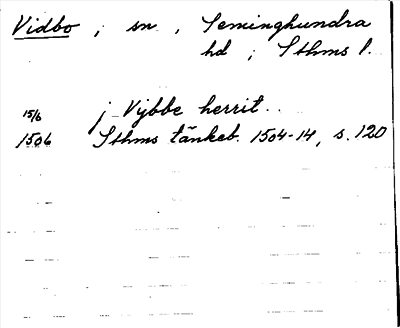 Vidbo, sn, Seminghundra
hd, Sthms l.
15/6 j Vybbe herrit..
1506 Sthms tänkeb. 1504-14, s. 120